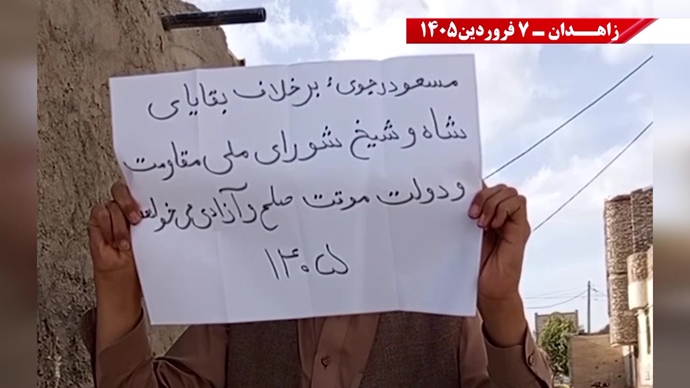 زاهدان - ۷ فروردین ۱۴۰۵
مسعود رجوی: برخلاف بقایای
شاه و شیخ شورای ملی مقاومت
و دولت موقت صلح و آزادی می‌خواهد
۱۴۰۵